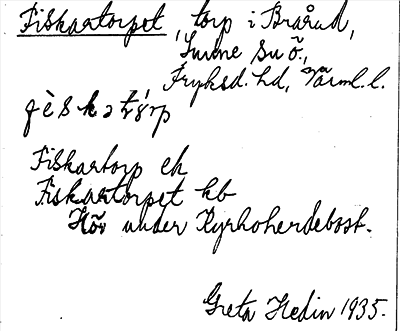 Fiskartorpet, torp i Brårud,
Sunne sn ö.,
Fryksd. hd, Värml. l.
Fiskartorp ek
Fiskartorpet kb
Hör under Kyrkoherdebost.
Greta Hedin 1935.